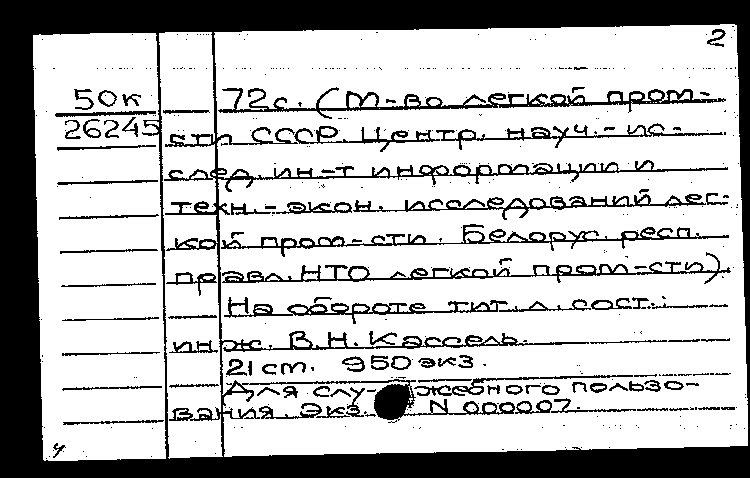 2
50к 72с. (М-во легкой пром-
26245 сти СССР. Центр. науч.-ис-
след. ин-т информации и
техн.-экон. исследований лег-
кой пром-сти. Белорус. респ.
правл. НТО легкой пром-сти).
На обороте тит. л. сост.:
инж. В.Н. Кассель.
21 cm. 950 экз.
Для слу-жебного пользо-
вания. Экз. N 000007.